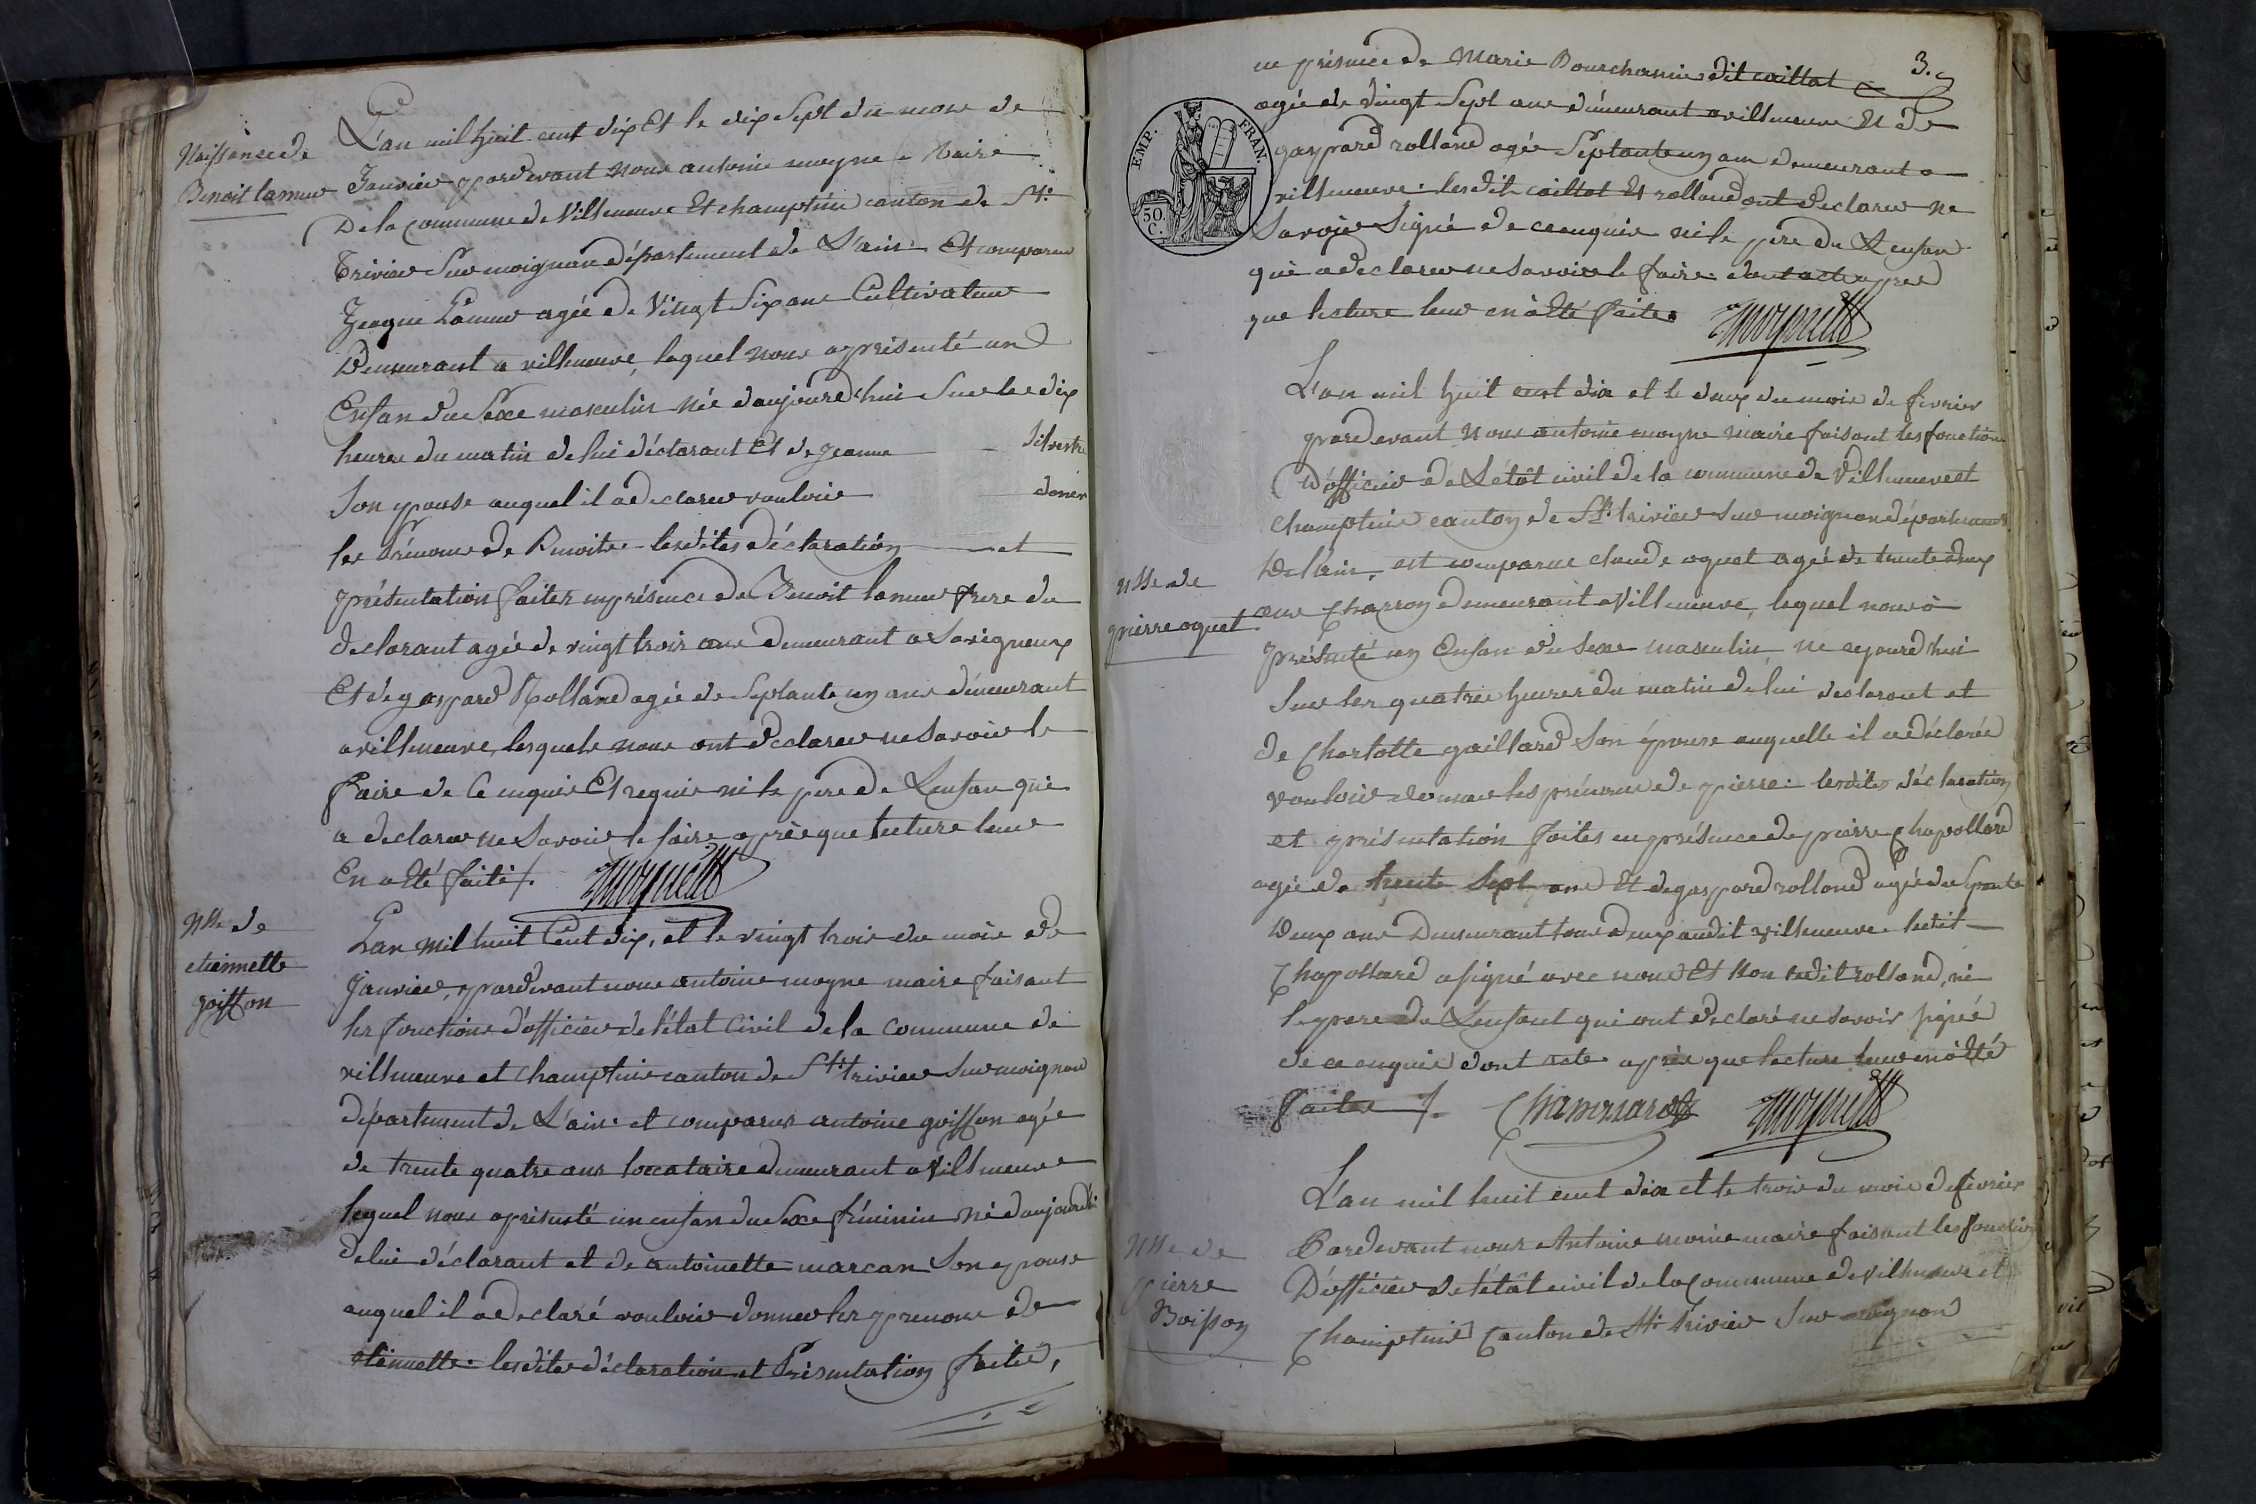 Naissance de
Benoit lamur
L'an mil huit cent dix Et le dix Sept du mois de
Janvier pardevant nous antoine moyne Maire
De la Commune de Villeneuve Et champtein canton de St.
Trivier Sur moignan département de L'ain. Et comparu
Jacque Lamur agée de Vingt Six ans Cultivateur
Demeurant a villeneuve, lequel nous a présenté un
Enfan du Sexe masculin Née d'aujourd'hui Sur les dix
heures du matin de lui déclarant Et de jeanne Silvestre
Son epouse auquel il a declarer vouloir doner
les Prénoms de Benoite. lesdites déclaration et
présentation faites en présence de Benoit lamur frere du
declarant agée de vingt trois ans demeurant a Savigneux
Et de gaspard Rolland agée de Septante un ans démeurant
a villeneuve, lesquels nous ont declarer ne Savoir le
faire de Ce enquis Et requis ni le pere de Lenfan qui
a declarer ne Savoir le faire après que lecture leur
En a Eté faite /.
Nsse de
etiennette
goiffon
Lan Mil huit Cent dix, et le vingt trois du mois de
Janvier, pardevant nous antoine moyne maire faisant
les fonctions d'officier de l'état Civil de la Commune de
villeneuve et Champtein canton de St trivier Sur moignan
département de L'ain. et comparus antoine goiffon agée
de trente quatre ans locataire demeurant a Villeneuve
lequel nous a présenté un enfan du Sexe féminin Né d'aujourd'hi
de lui déclarant et de antoinette marcan Son epouse
auquel il a declaré vouloir donner les prenoms de
etiennette. lesdites déclaration et Présentation faite,
3.
en présence de Marie Bourchanin dit caillat
agée de vingt Sept ans démeurant a villeneuve Et de
gaspard rolland agée Septante un ans demeurant a
villeneuve. lesdit caillat Et rolland ont declarer ne
Savoir Signé de ce enquis ni le pere de Lenfan
qui a declarer ne Savoir le faire. dont acte apres
que lecture leur en à Eté faites
EMP. FRAN.
50.
C.
L'an mil huit cent dix et le deux du mois de fevrier
pardevant Nous antoine moyne maire faisant les fonction
D'officier de L'état civil de la commune de Villeneuve et
Champtein canton de St. trivier sur moignan département
De l'ain, est comparue claude oquet agée de trente deux
Nsse de
pierre oquet
ans Charron demeurant a Villeneuve, lequel nous à
présenté un Enfan du Sexe masculin, ne aujourd'hui
Sur les quatre heures du matin de lui declarant et
de Charlotte gaillard Son épouse auquelle il a déclarée
vouloir donner les prénoms de pierre. lesdites déclaration
et présentation faites en présence de pierre Chapollard
agée de trente Sept ans Et de gaspard rolland agée de Septante
Deux ans Demeurant tous deux audit villeneuve. ledit
Chapollard a signé avec nous Et Non ledit rolland, ni
le pere de Lenfant qui ont declaré ne savoir signé
de ce enquis dont acte après que lecture leur en à Eté
faites /.
Nsse de
pierre
Boisson
L'an mil huit cent dix et le trois du mois de fevrier
Pardevant nous Antoine moine maire faisant les fonction
D'officier de l'état civil de la Commune de Villeneuve et
Champtein Canton de St trivier Sur moignan